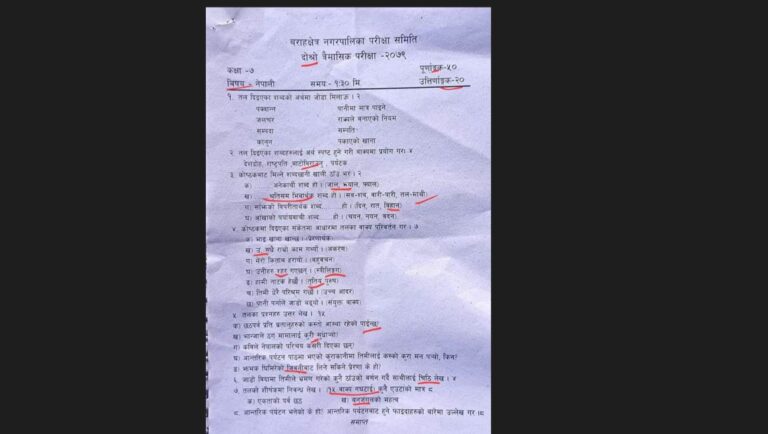 बराहक्षेत्र नगरपालिका परीक्षा समिति
दोश्रो त्रैमासिक परीक्षा -२०७९
कक्षा -७ पूर्णाङ्क-५०
विषय - नेपाली समय - १:३० मि उत्तिर्णाङ्क-२०
१. तल दिइएका शब्दको अर्थमा जोडा मिलाऊ । २
पक्वान्न पानीमा मात्र पाइने
जलचर राज्यले बनाएको नियम
सम्पदा सम्पति
कानुन पकाएको खाना
२. तल दिइएका शब्दहरुलाई अर्थ स्पष्ट हुने गरी वाक्यमा प्रयोग गर। ४
देशद्रोह, राष्ट्रपति, पर्यटक
३. कोष्ठकबाट मिल्ने शब्दछानी खाली ठाँउ भर । २
क) ....अनेकार्थी शब्द हो । (जाल, झ्याल, फ्याल)
ख) .... शब्द हो । (सव-शव, वारी-पारी, तल-माथी)
ग) साँझको विपरीतार्थक शब्द......हो । (दिन, रात, विहान)
घ) आँखाको पर्यायवाची शब्द.....हो । (चयन, नयन, वदन)
४. कोष्ठकमा दिइएका संकेतका आधारमा तलका वाक्य परिवर्तन गर । ७
क) भाइ खाना खान्छ । (प्रेरणार्थक)
ख) उ सधै राम्रो काम गर्थ्यो । (अकरण)
ग) मेरो किताब हरायो । (बहुवचन)
घ) उनीहरु शहर गएछन् । (स्त्रीलिङ्ग)
ङ) हामी नाटक हेर्छौ । (तृतिय पुरुष)
च) तिमी धेरै परिश्रम गर्छौ । (उच्च आदर)
छ) पानी पर्नाले जाडो बढ्यो । (संयुक्त वाक्य)
५. तलका प्रश्नहरु उत्तर लेख । १५
क) छठपर्व प्रति व्रतालुहरुको कस्तो आस्था रहेको पाईन्छ।
ख) भान्जाले ठग मामालाई कसरी सुधार्यो।
ग) कविले नेपालको परिचय कसरी दिएका छन्।
घ) आन्तरिक पर्यटन पाठमा भएको कुराकानीमा तिमीलाई कस्को कुरा मन पर्यो, किन?
ङ) झमक घिमिरेको जिवनीबाट लिन सकिने प्रेरणा के हो।
६. जाडो विदामा तिमीले भ्रमण गरेको कुनै ठाँउको वर्णन गर्दै साथीलाई चिठि लेख । ४
७. तलको शीर्षकमा निबन्ध लेख । (१५ वाक्य नघटाई) कुनै एउटाको मात्र ८
क) एकताको पर्व छठ ख) वनजंगलको महत्व
८. आन्तरिक पर्यटन भनेको के हो? आन्तरिक पर्यटनबाट हुने फाइदाहरुको बारेमा उल्लेख गर ।८
समाप्त